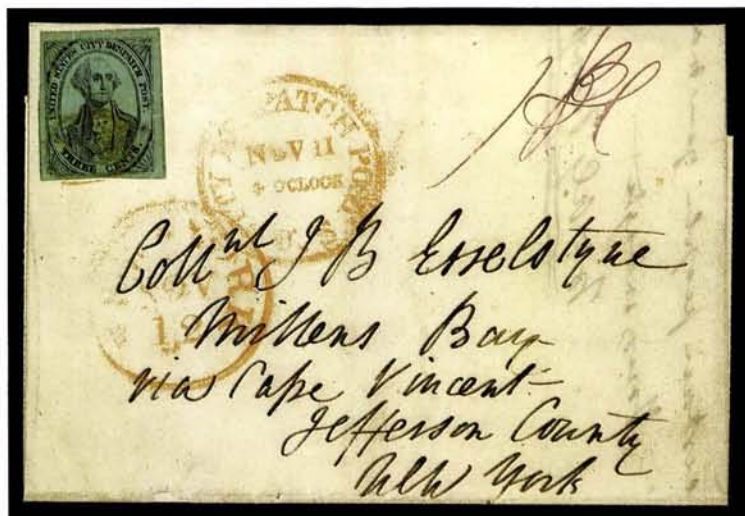 UNITED STATES CITY DESPATCH POST.
THREE CENTS.
CITY DESPATCH POST
NOV 11
4 OCLOCK
U.S.
NOV
12
Collnl J B Esselstyne
Millens Bay
via Cape Vincent
Jefferson County
New York